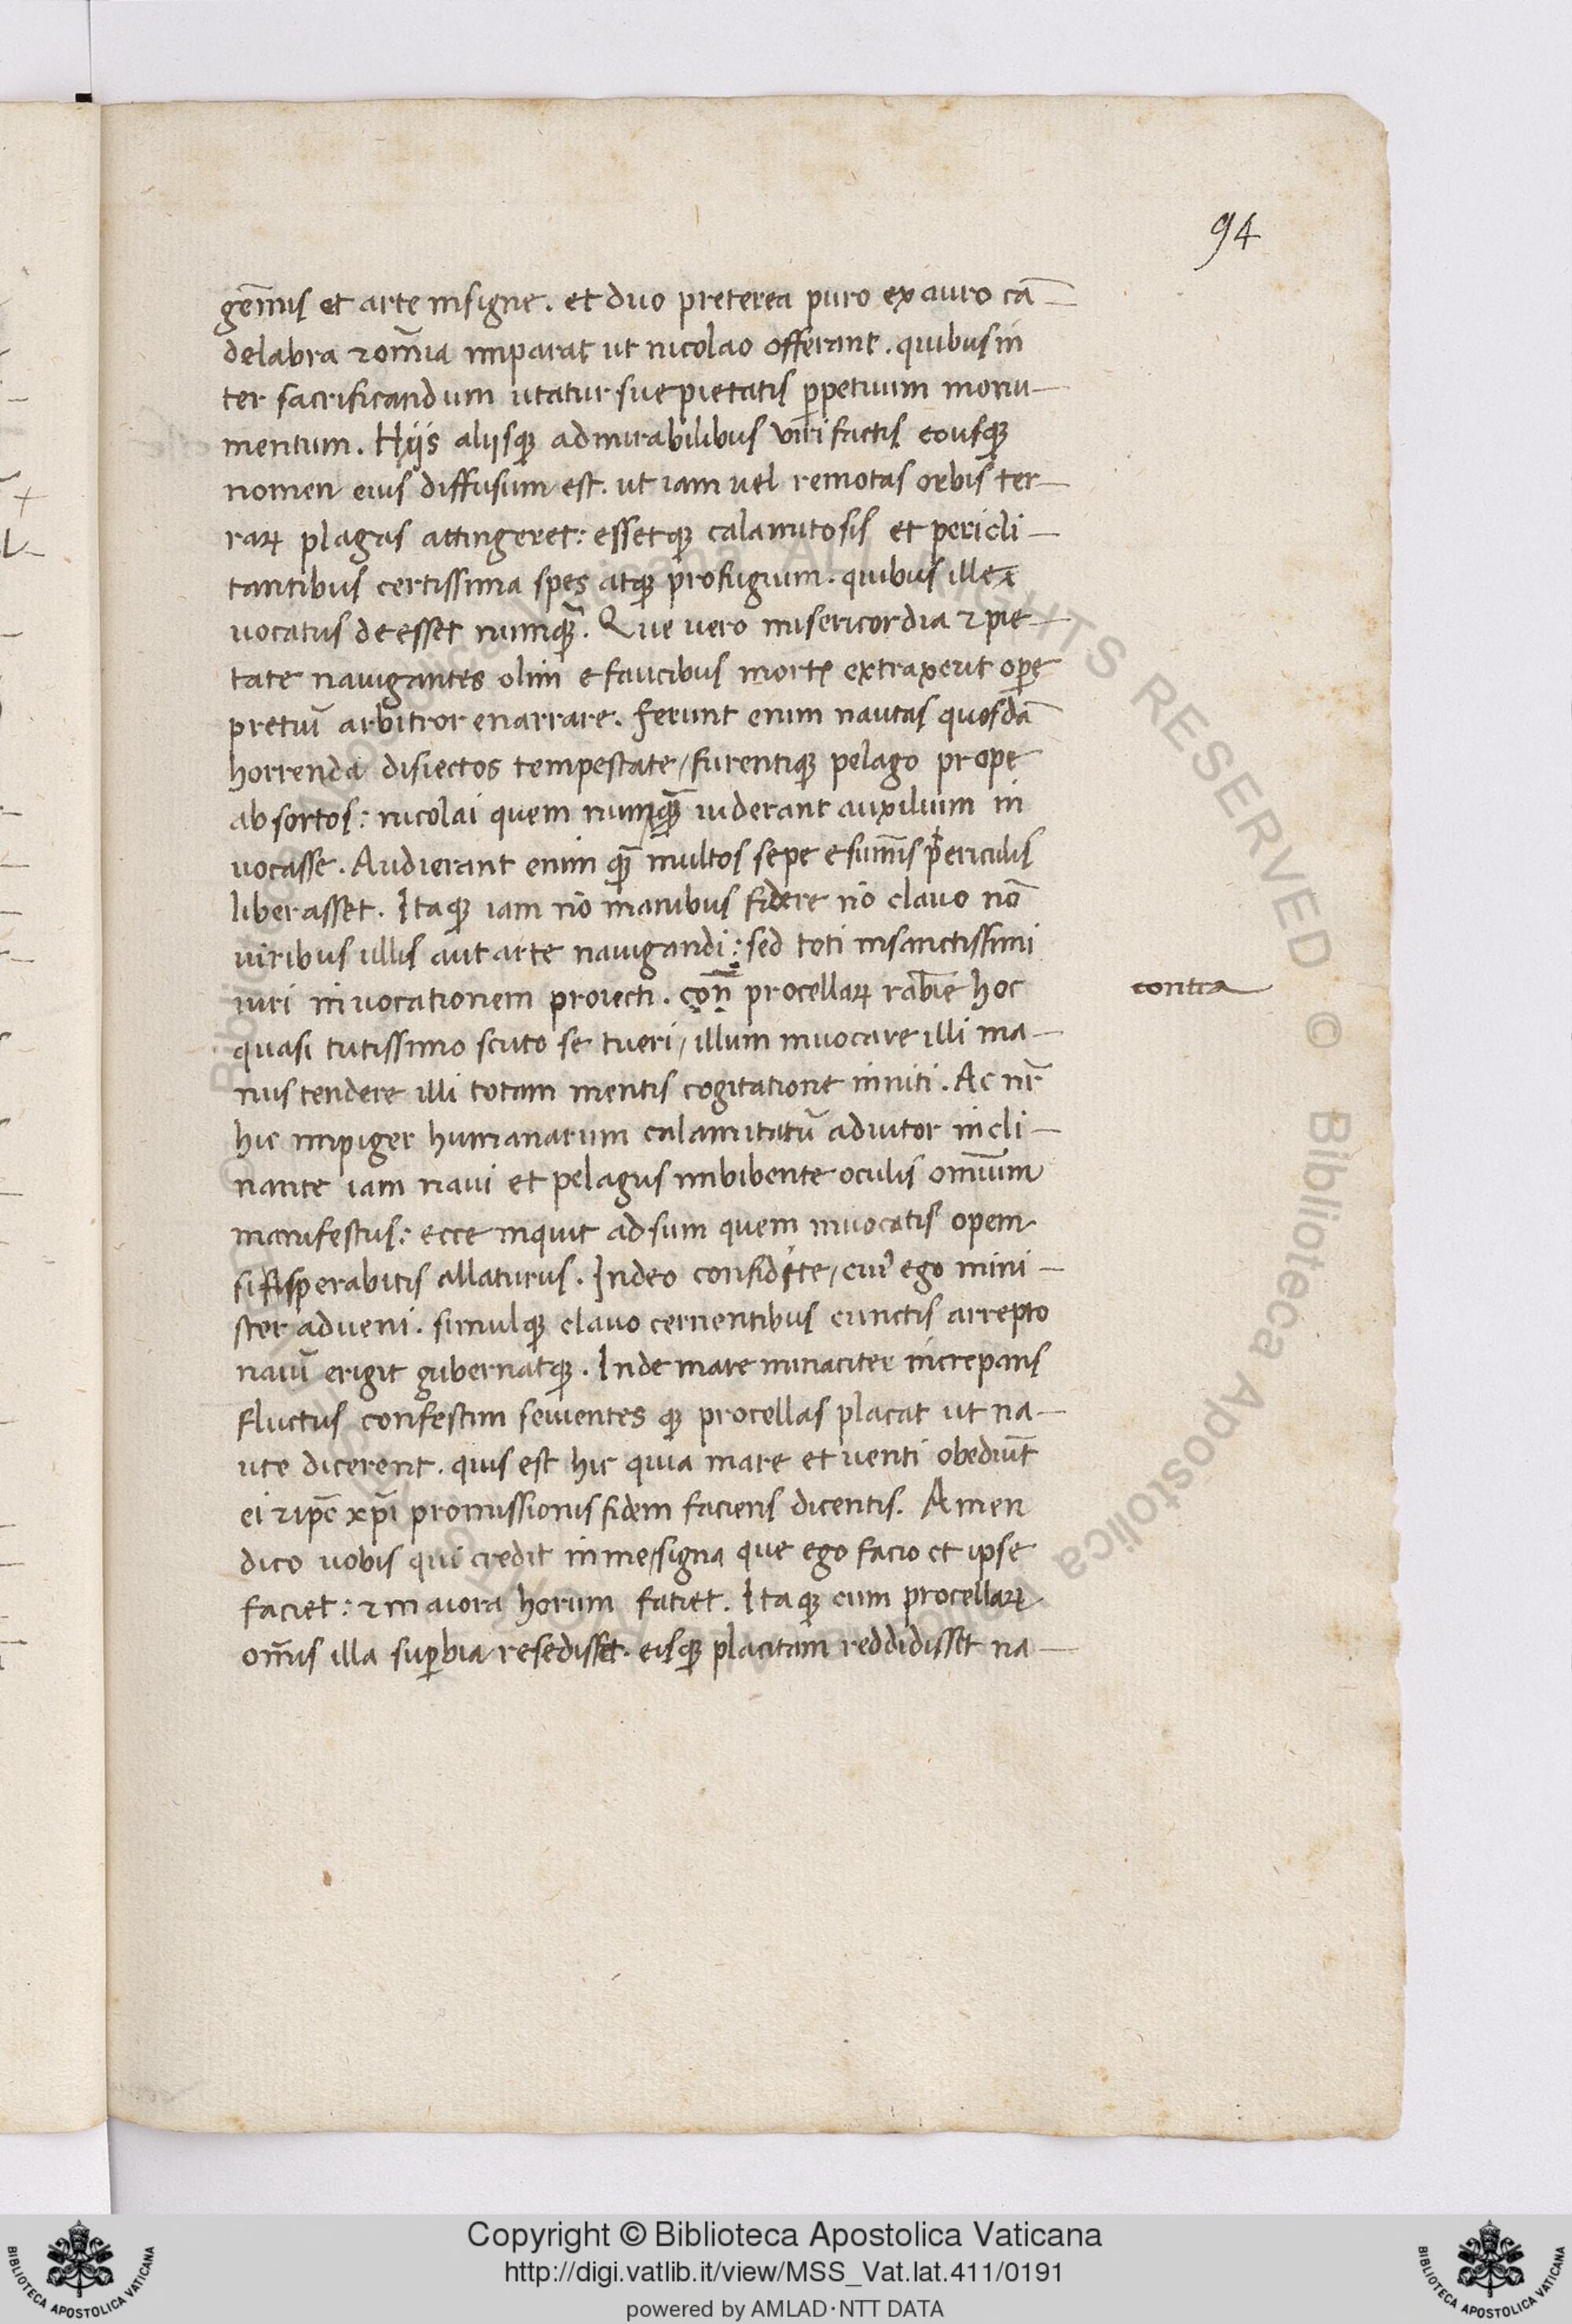 94
gem̄is et arte insigne. et duo preterea puro ex auro cā-
delabra ⁊ om̄ia imparat ut nicolao offerant. quibus in
ter sacrificandum utatur sue pietatis ꝑpetuum monu-
mentum. Hijs alijsqꝫ admirabilibus viri factis eousqꝫ
nomen eius diffusum est. ut iam uel remotas orbis ter-
raꝝ plagas attingeret: essetqꝫ calamitosis et pericli-
tantibus certissima spes atqꝫ profugium. quibus ille
uocatus deesset numqꝫ̄. Que uero misericordia ⁊ pie-
tate nauigantes olim e faucibus mortꝭ extraxerit oꝑe
pretiū arbitror enarrare. ferunt enim nautas quosdā
horrenda disiectos tempestate/ furentiqꝫ pelago prope
absortos: nicolai quem numqꝫ̄ uiderant auxilium in
uocasse. Audierant enim qꝫ̄ multos sepe e sum̄is periculis
liberasset. Itaqꝫ iam nō manibus fidere nō clauo nō
uiribus illis aut arte nauigandi: sed toti in sanctissimi
uiri inuocationem proiecti. con̄ procellaꝝ rabiē hoc
contra
quasi tutissimo scuto se tueri/ illum inuocare illi ma-
nus tendere illi totam mentis cogitatione inniti. Ac nr̄
hic impiger humanarum calamitatū adiutor incli-
nante iam naui et pelagus imbibente oculis omīum
manifestus: ecce inquit adsum quem inuocatis opem
si sperabitis allaturus. In deo confidite/ cuiꝰ ego mini-
ster adueni. simulqꝫ clauo cernentibus cunctis arrepto
nauī erigit gubernatqꝫ. Inde mare minaciter increpans
fluctus confestim seuientes qꝫ procellas placat ut na-
ute dicerent. quis est hic quia mare et uenti obediūt
ei ⁊ ip̄e xp̄i promissionis fidem faciens dicentis. Amen
dico uobis qui credit in me/ signa que ego facio et ipse
faciet: ⁊ maiora horum fatiet. Itaqꝫ cum procellaꝝ
om̄is illa suꝑbia resedisset. eisqꝫ placitam reddidisset na-
Copyright © Biblioteca Apostolica Vaticana
http://digi.vatlib.it/view/MSS_Vat.lat.411/0191
powered by AMLAD·NTT DATA